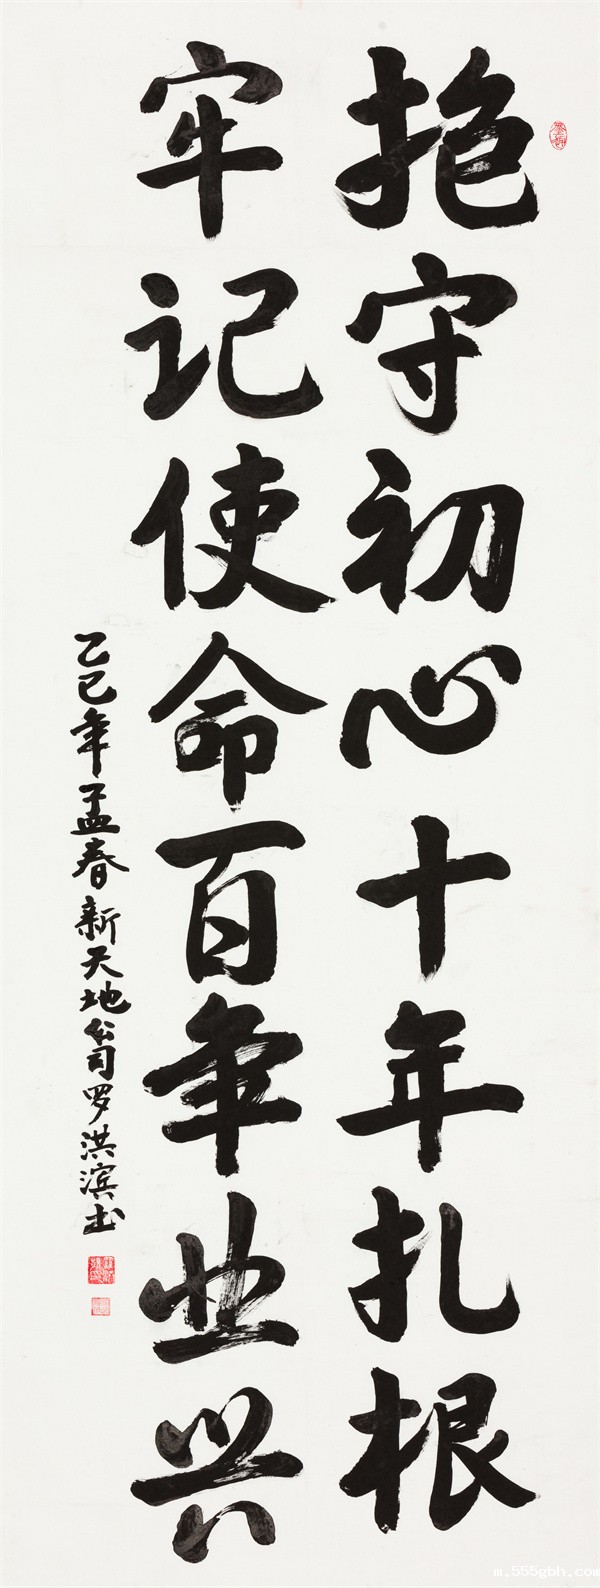 抱守初心十年扎根
牢记使命百年业兴
乙巳年孟春新天地公司罗洪滨书
m.555gbh.com